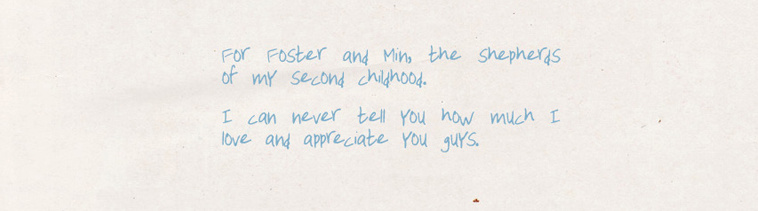 For Foster and Min, the shepherds
of my second childhood.
I can never tell you how much I
love and appreciate you guys.